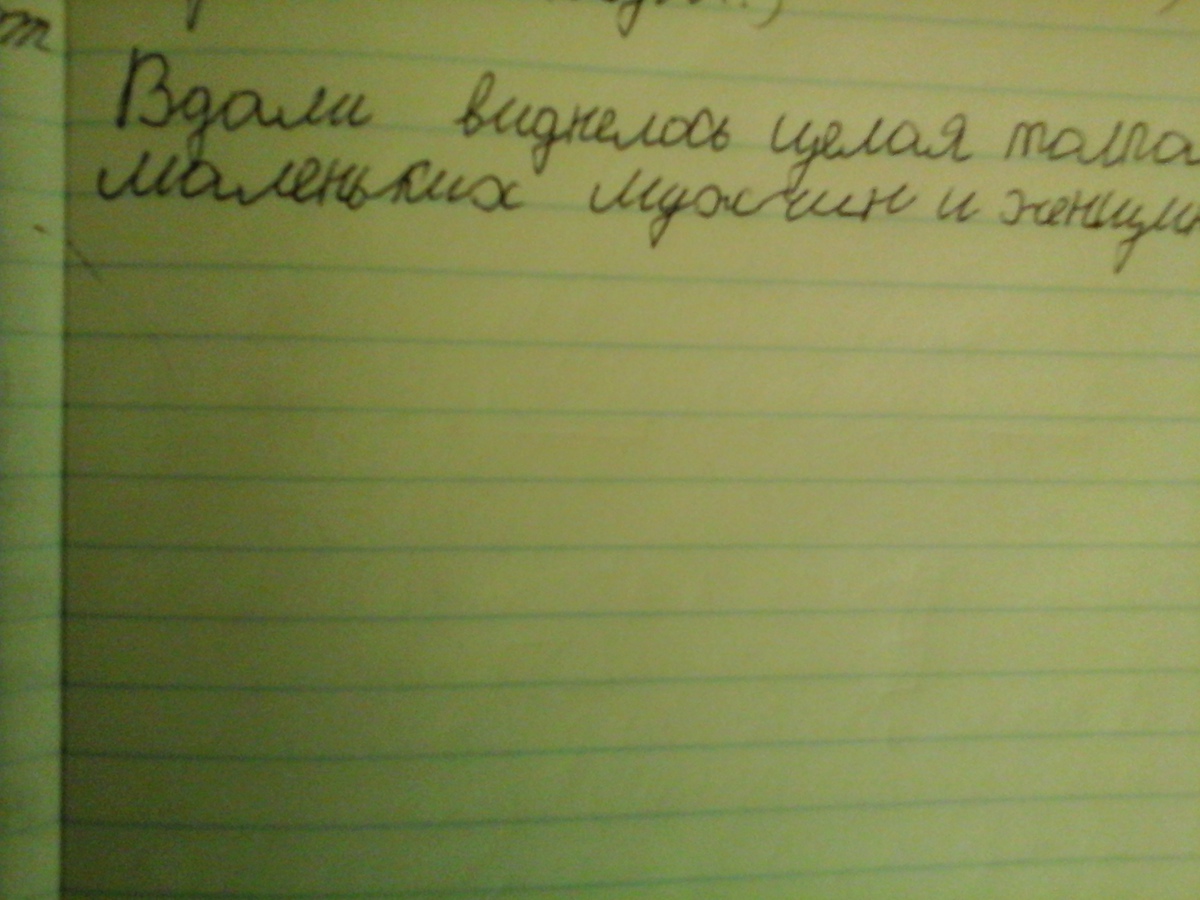 Вдали виднелось целая толпа
маленьких мужчин и женщин